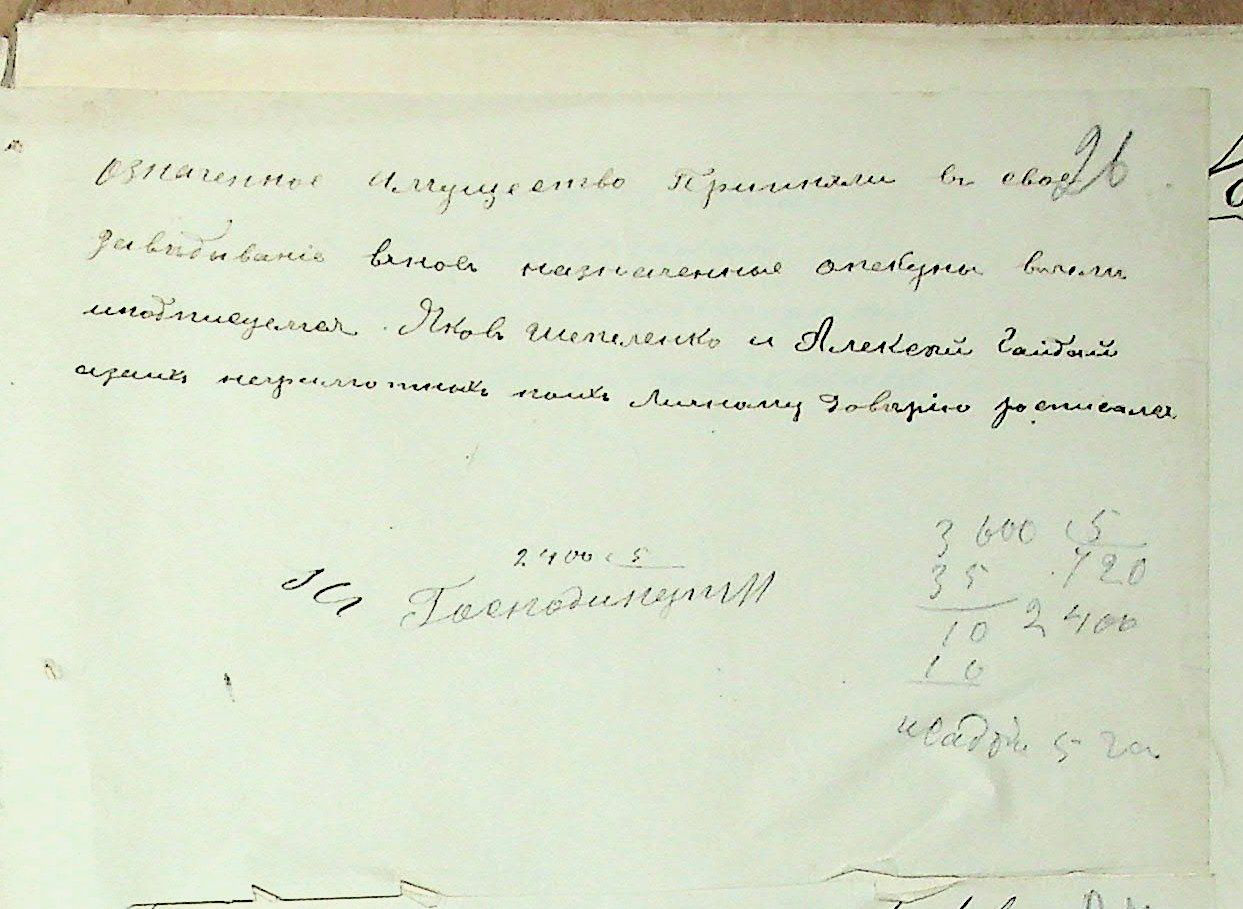 26
означенное имущество Приняли въ свое
завѣдываніе вновь назначенные опекуны въчемъ
иподписуемся. Яковъ Шепеленко и Алексѣй Гайдай
азаихъ неграмотныхъ поихъ личному довѣрію росписался
2400 5
3600 5
35 720
10 2400
10
5